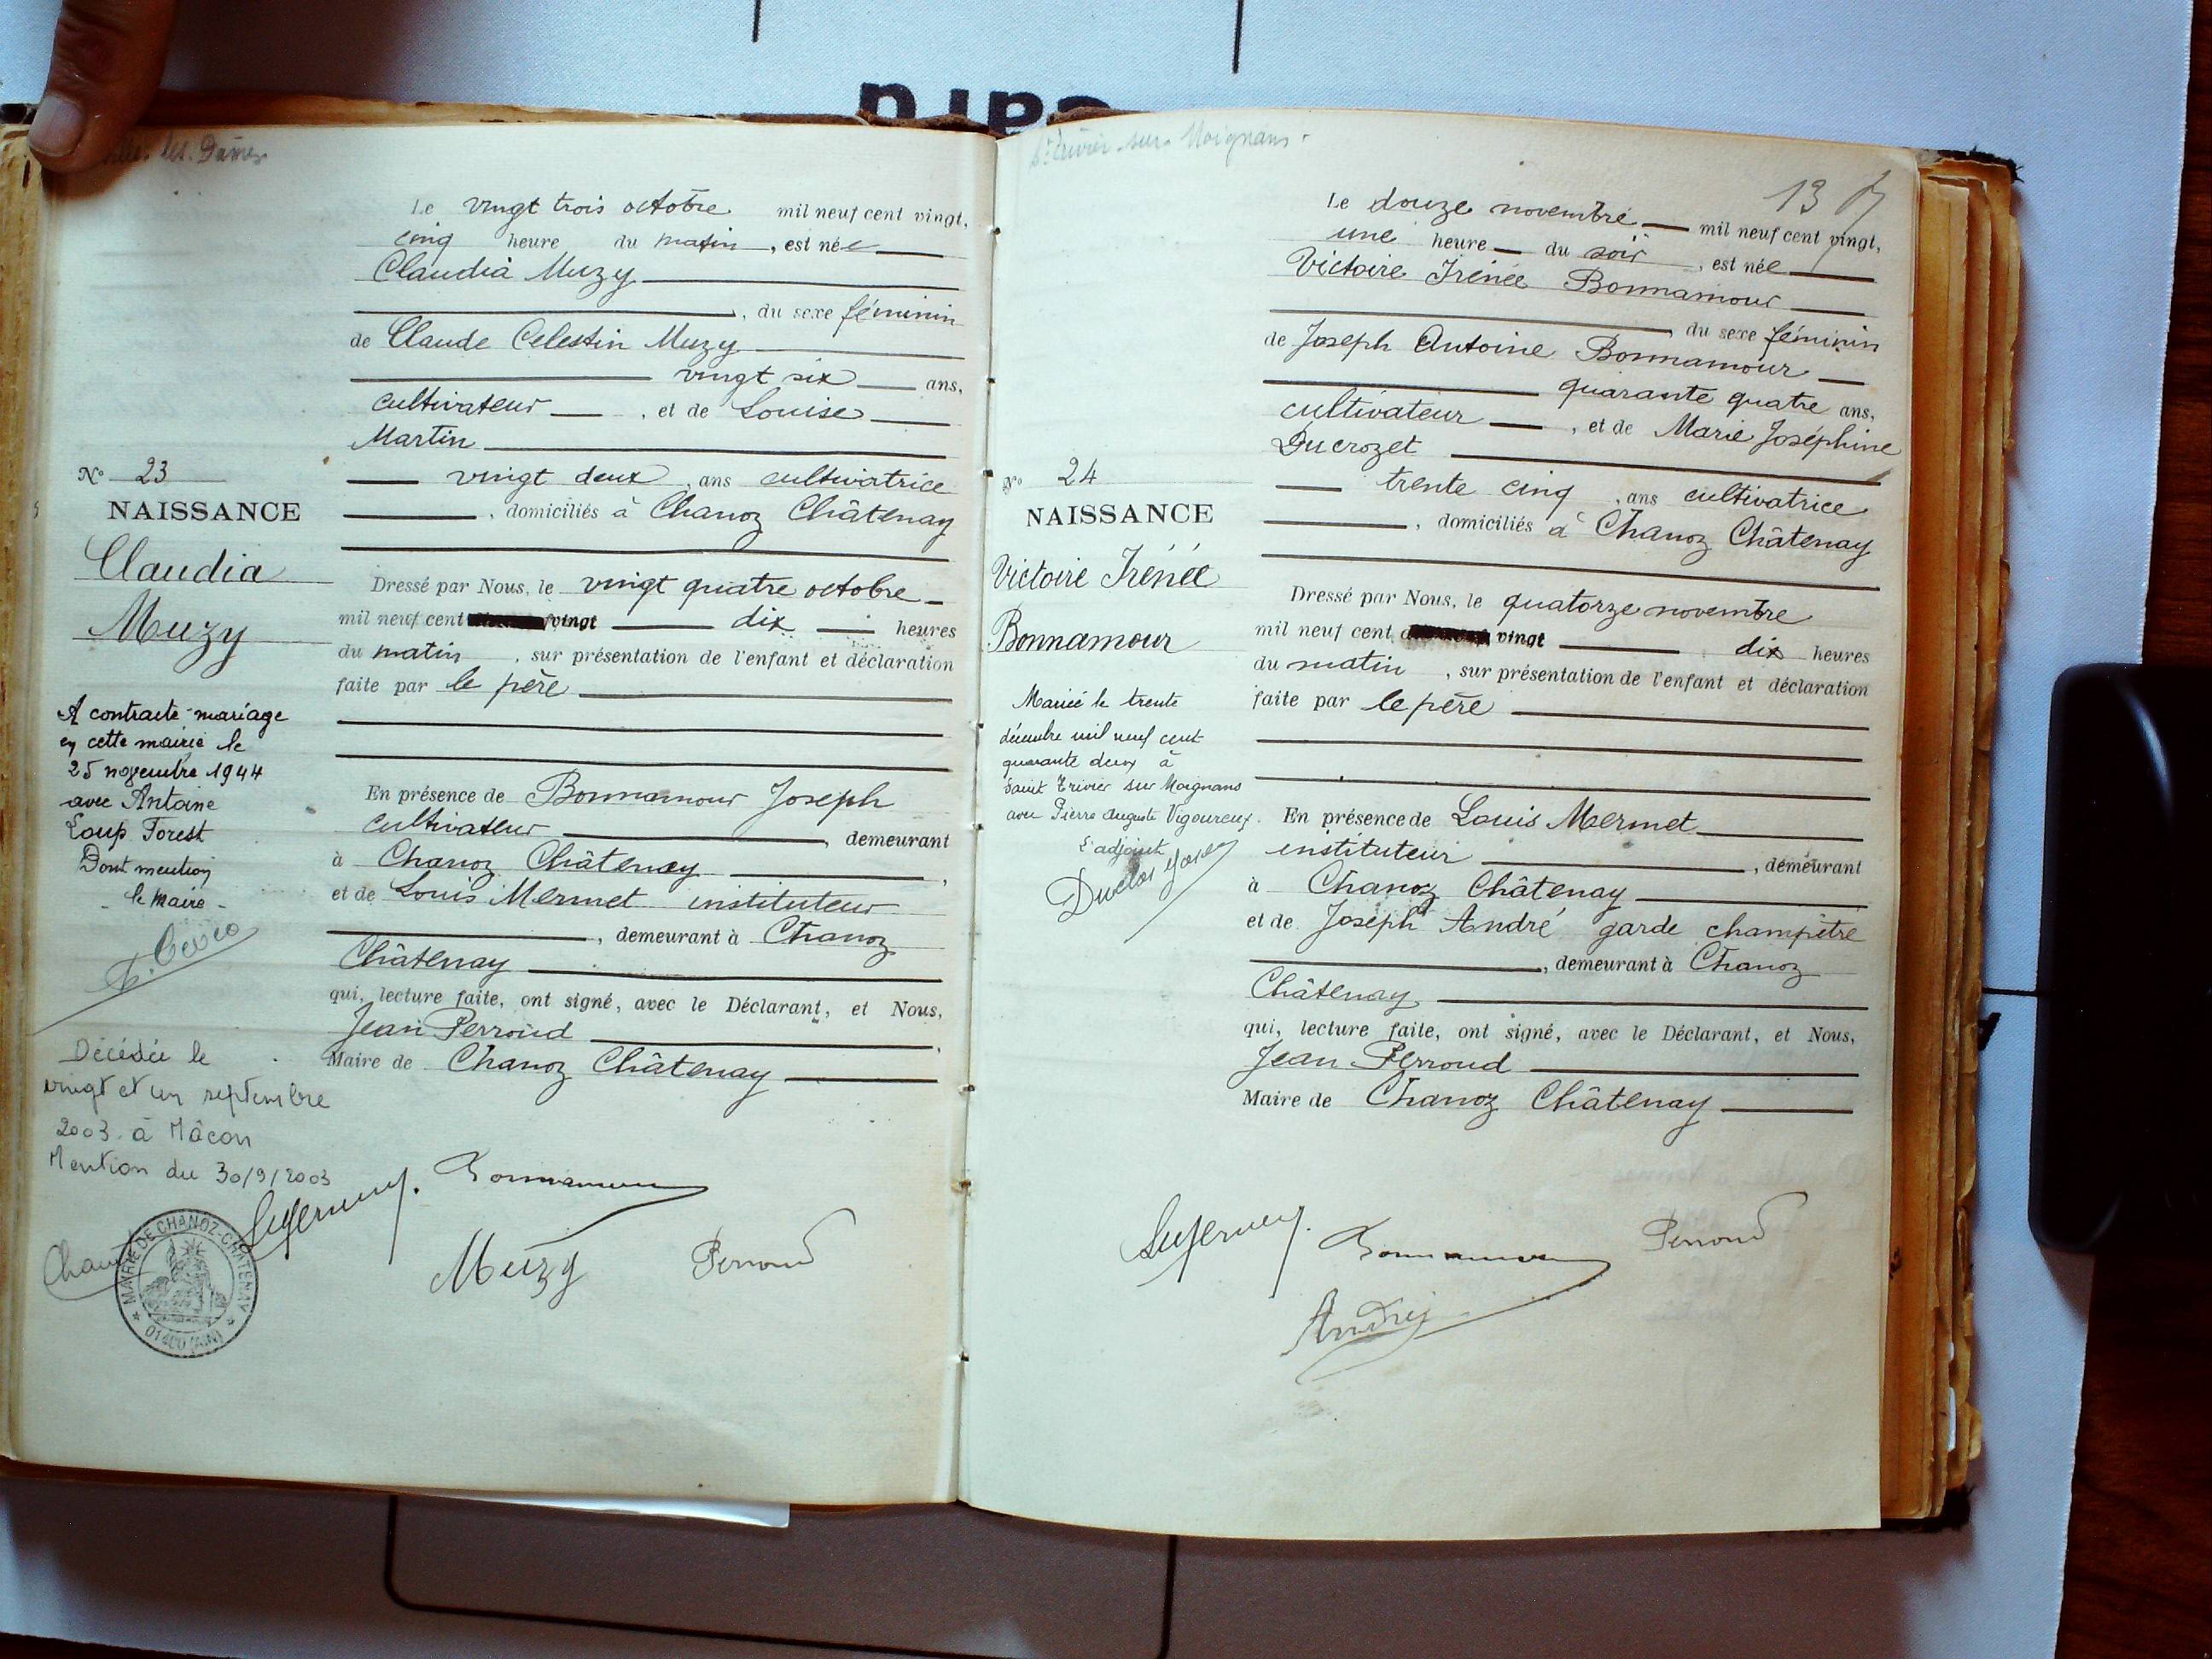 les Dames
Le vingt trois octobre mil neuf cent vingt,
cinq heure du matin, est née
Claudia Muzy
, du sexe féminin
de Claude Celestin Muzy
vingt six ans,
cultivateur, et de Louise
Martin
vingt deux, ans cultivatrice
, domiciliés à Chanoz Châtenay
N° 23
NAISSANCE
Claudia
Muzy
Dressé par Nous, le vingt quatre octobre
mil neuf cent vingt dix heures
du matin, sur présentation de l'enfant et déclaration
faite par le père
A contracté mariage
en cette mairie le
25 novembre 1944
avec Antoine
Loup Forest
Dont mention
le Maire
En présence de Bonnamour Joseph
cultivateur, demeurant
à Chanoz Châtenay,
et de Louis Mermet instituteur
, demeurant à Chanoz
Châtenay
qui, lecture faite, ont signé, avec le Déclarant, et Nous,
Jean Perroud,
Maire de Chanoz Châtenay
Décédée le
vingt et un septembre
2003 à Mâcon
Mention du 30/9/2003
Bonnamour
Muzy
Perroud
MAIRIE DE CHANOZ-CHATENAY
01400 (AIN)
St Trivier sur Moignans
13
Le douze novembre mil neuf cent vingt,
une heure du soir, est née
Victoire Irénée Bonnamour
, du sexe féminin
de Joseph Antoine Bonnamour
quarante quatre ans,
cultivateur, et de Marie Joséphine
Ducrozet
trente cinq, ans cultivatrice
, domiciliés à Chanoz Châtenay
N° 24
NAISSANCE
Victoire Irénée
Bonnamour
Dressé par Nous, le quatorze novembre
mil neuf cent vingt dix heures
du matin, sur présentation de l'enfant et déclaration
faite par le père
Mariée le trente
décembre mil neuf cent
quarante deux à
Saint Trivier sur Moignans
avec Pierre Auguste Vigoureux.
L'adjoint
En présence de Louis Mermet
instituteur, demeurant
à Chanoz Châtenay
et de Joseph André garde champêtre
, demeurant à Chanoz
Châtenay
qui, lecture faite, ont signé, avec le Déclarant, et Nous,
Jean Perroud
Maire de Chanoz Châtenay
Bonnamour
Perroud
André